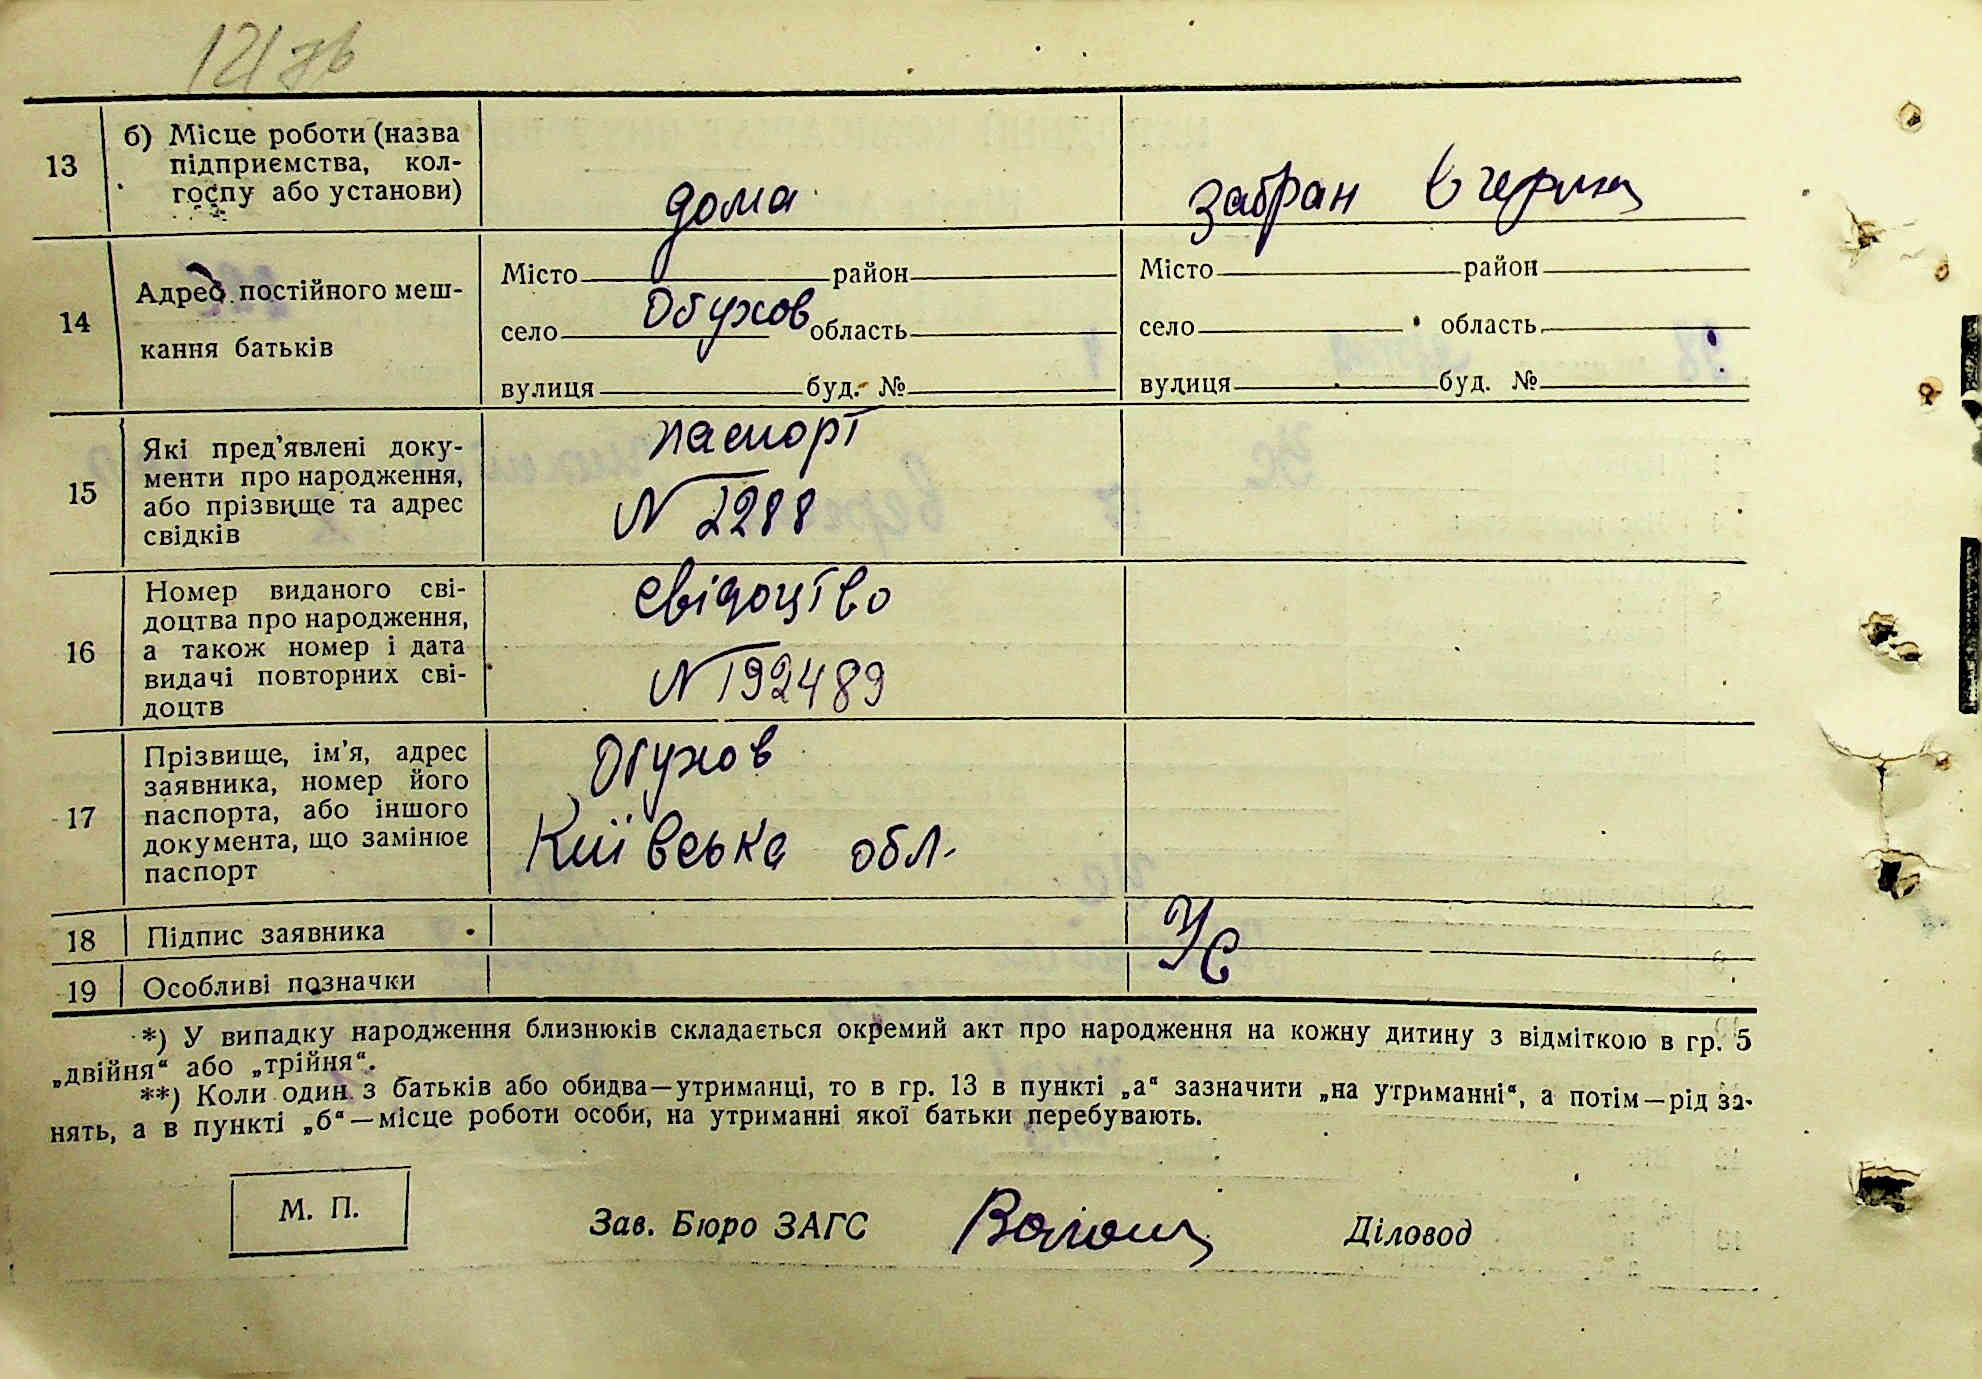 121 зв
13
б) Місце роботи (назва
підприємства, кол-
госпу або установи)
дома
забран в
14
Адрес постійного меш-
кання батьків
Місто район
село Обухов область
вулиця буд. №
Місто район
село область
вулиця буд. №
15
Які пред'явлені доку-
менти про народження,
або прізвище та адрес
свідків
паспорт
N 2288
16
Номер виданого сві-
доцтва про народження,
а також номер і дата
видачі повторних сві-
доцтв
свідоцтво
N 192489
17
Прізвище, ім'я, адрес
заявника, номер його
паспорта, або іншого
документа, що замінює
паспорт
Обухов
Київська обл.
18
Підпис заявника
Ус
19
Особливі позначки
*) У випадку народження близнюків складається окремий акт про народження на кожну дитину з відміткою в гр. 5
„двійня“ або „трійня“.
**) Коли один з батьків або обидва—утриманці, то в гр. 13 в пункті „а“ зазначити „на утриманні“, а потім—рід за-
нять, а в пункті „б“—місце роботи особи, на утриманні якої батьки перебувають.
М. П.
Зав. Бюро ЗАГС
Діловод